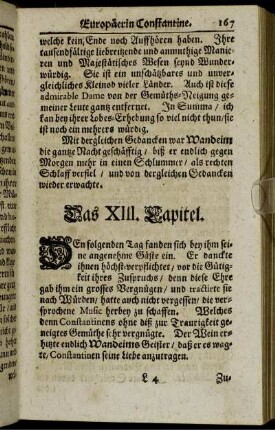 Europäerin Constantine. 167
welche kein Ende noch Auffhören haben. Ihre
tausendfältige liebreitzende und anmuthige Manie-
ren und Majestätisches Wesen seynd Wunder-
würdig. Sie ist ein unschätzbares und unver-
gleichliches Kleinod vieler Länder. Auch ist diese
admirable Dame von der Gemüths-Neigung ge-
meiner Leute gantz entfernet. In Summa / ich
kan bey ihrer Lobes-Erhebung so viel nicht thun / sie
ist noch ein mehrers würdig.
Mit dergleichen Gedancken war Wandeim
die gantze Nacht geschäfftig / biß er endlich gegen
Morgen mehr in einen Schlummer / als rechten
Schlaff verfiel / und von dergleichen Gedancken
wieder erwachte.
Das XIII. Capitel.
DEn folgenden Tag fanden sich bey ihm sei-
ne angenehme Gäste ein. Er danckte
ihnen höchst-verpflichtet / vor die Gütig-
keit ihres Zuspruchs / denn diese Ehre
gab ihm ein grosses Vergnügen / und tractirte sie
nach Würden / hatte auch nicht vergessen / die ver-
sprochene Music herbey zu schaffen. Welches
denn Constantinens ohne diß zur Traurigkeit ge-
neigtes Gemüthe sehr vergnügte. Der Wein er-
hitzte endlich Wandeims Geister / daß er es wag-
te / Constantinen seine Liebe anzutragen.
L 4 Zu-